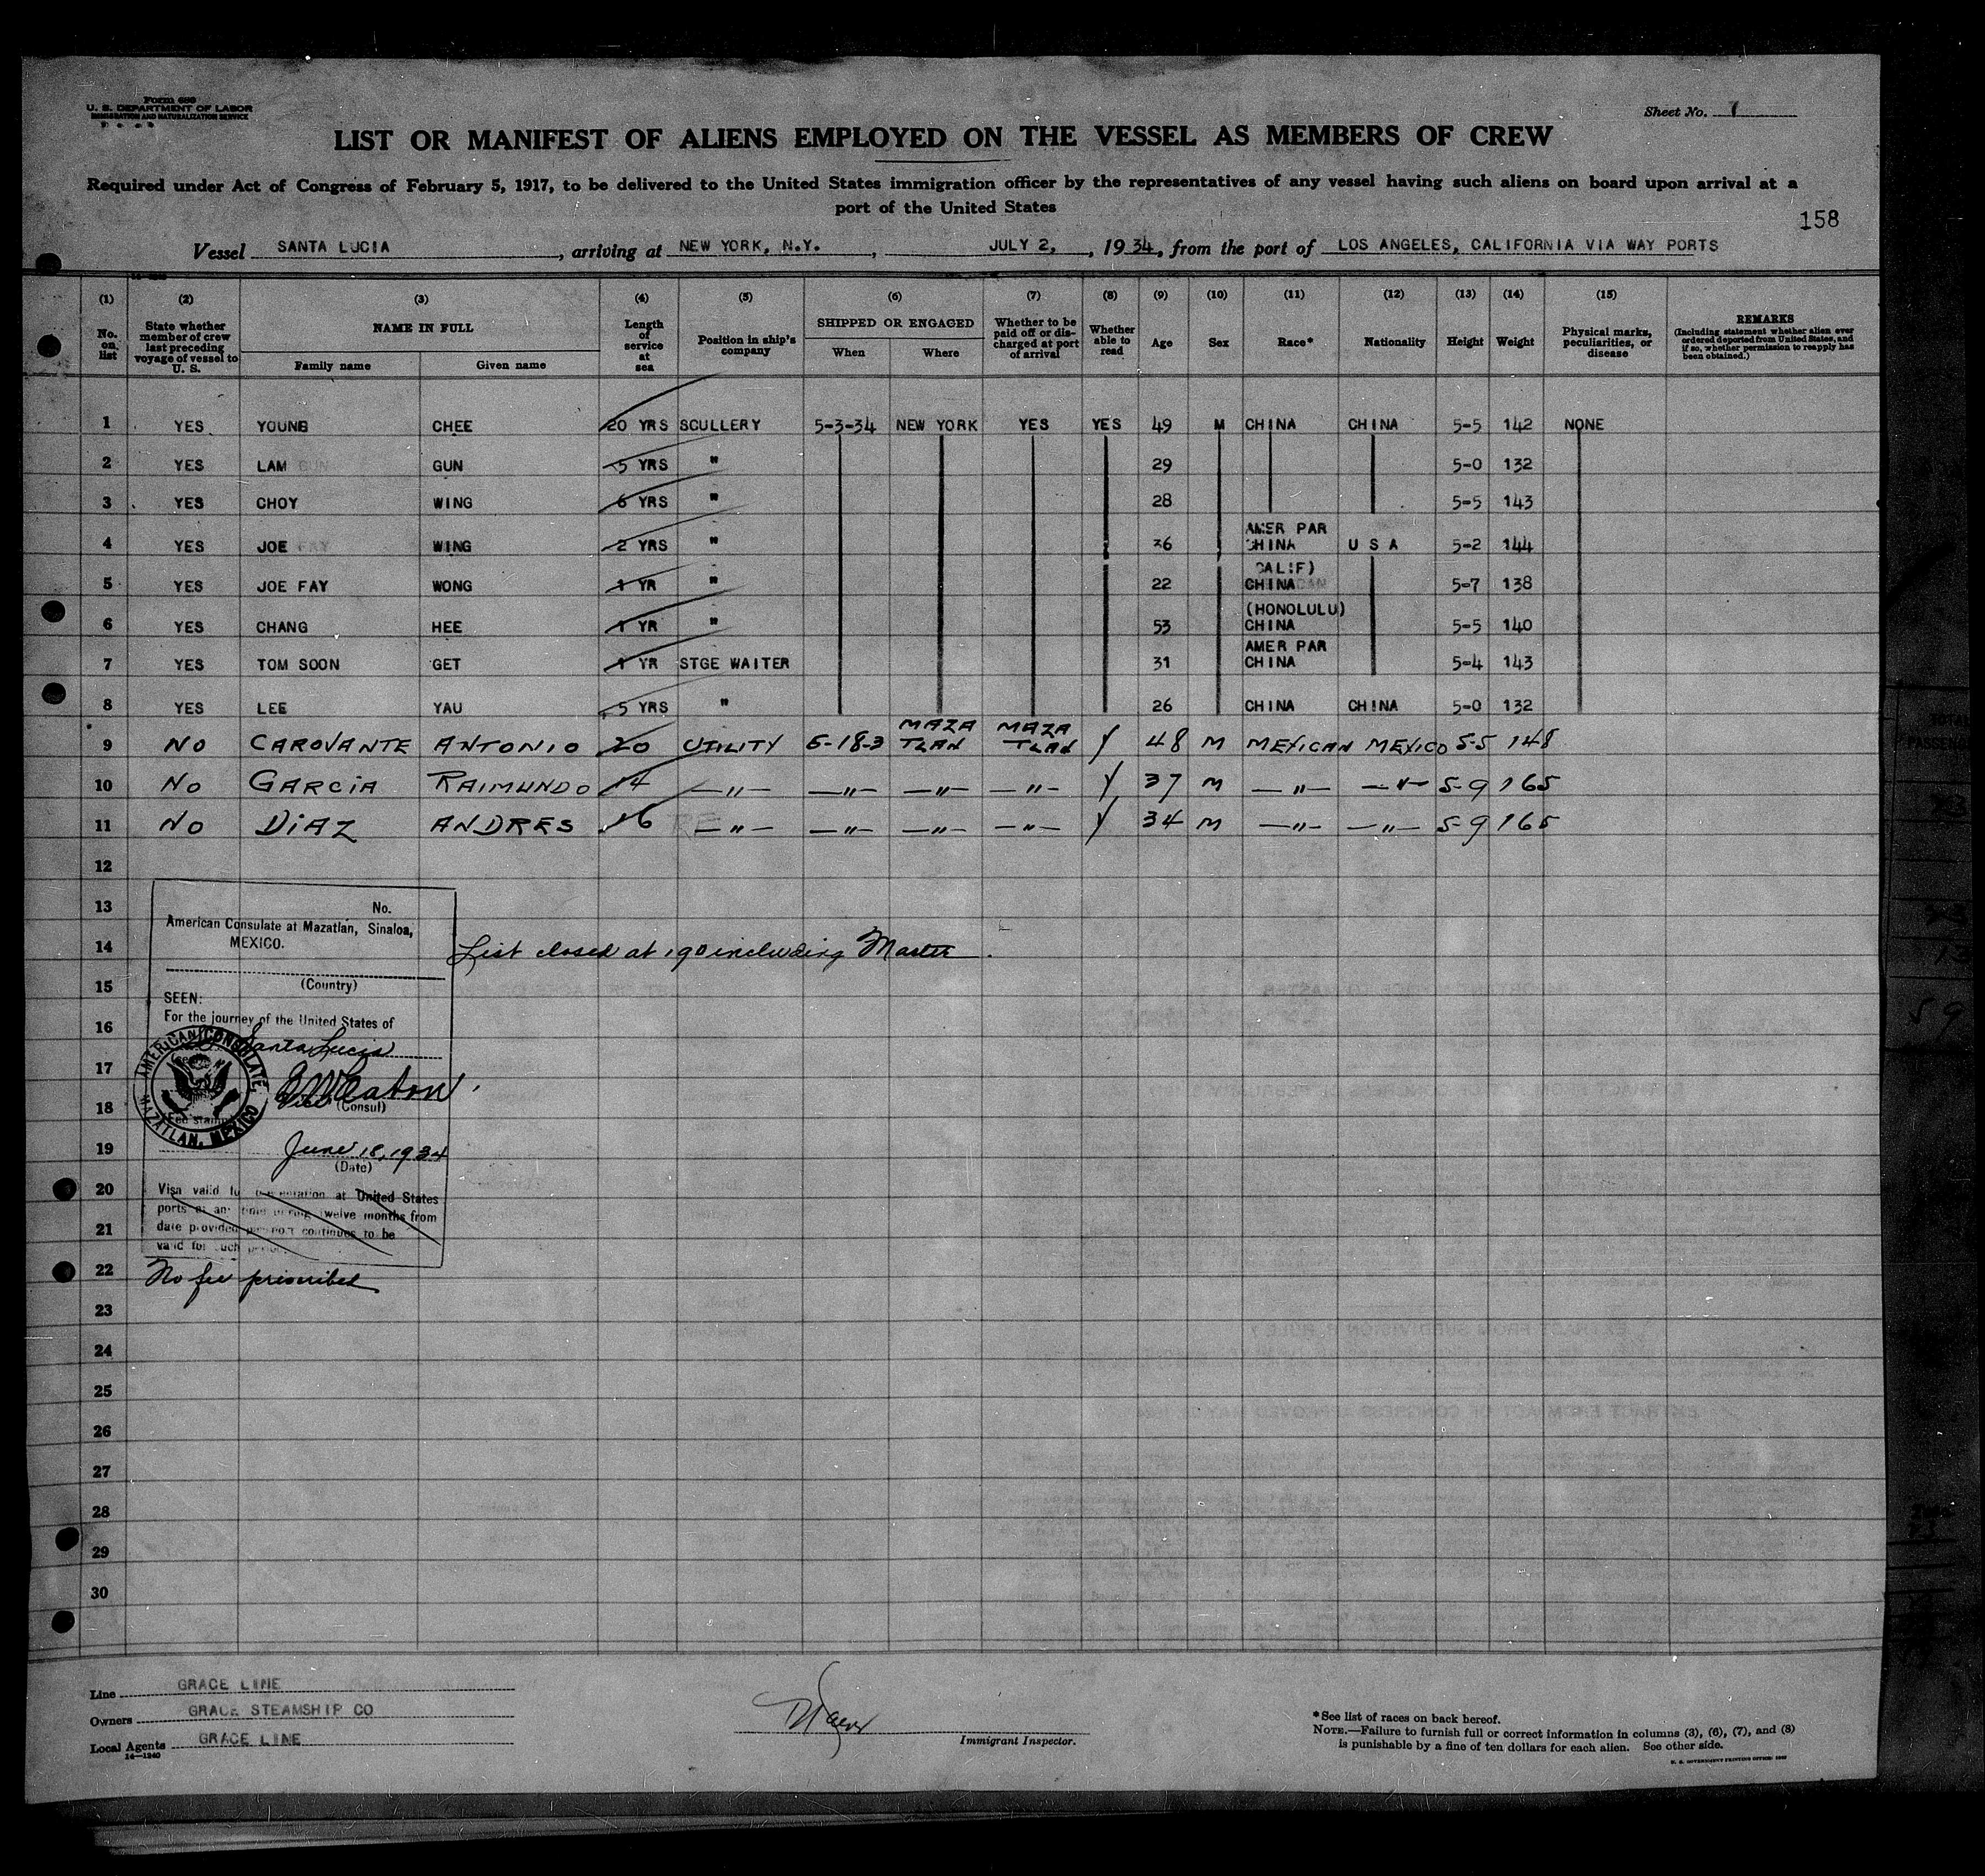 Form 680
U. S. DEPARTMENT OF LABOR
IMMIGRATION AND NATURALIZATION SERVICE
Sheet No. 1
LIST OR MANIFEST OF ALIENS EMPLOYED ON THE VESSEL AS MEMBERS OF CREW
Required under Act of Congress of February 5, 1917, to be delivered to the United States immigration officer by the representatives of any vessel having such aliens on board upon arrival at a
port of the United States
158
Vessel SANTA LUCIA, arriving at NEW YORK, N.Y., JULY 2, 1934, from the port of LOS ANGELES, CALIFORNIA VIA WAY PORTS
(1) (2) (3) (4) (5) (6) (7) (8) (9) (10) (11) (12) (13) (14) (15)
No. on list
State whether member of crew last preceding voyage of vessel to U. S.
NAME IN FULL
Family name
Given name
Length of service at sea
Position in ship's company
SHIPPED OR ENGAGED
When
Where
Whether to be paid off or discharged at port of arrival
Whether able to read
Age
Sex
Race*
Nationality
Height
Weight
Physical marks, peculiarities, or disease
REMARKS
(Including statement whether alien ever ordered deported from United States, and if so, whether permission to reapply has been obtained.)
1 YES YOUNG CHEE 20 YRS SCULLERY 5-3-34 NEW YORK YES YES 49 M CHINA CHINA 5-5 142 NONE
2 YES LAM GUN 5 YRS " 29 5-0 132
3 YES CHOY WING 6 YRS " 28 5-5 143
AMER PAR
4 YES JOE WING 2 YRS " 36 CHINA U S A 5-2 144
CALIF)
5 YES JOE FAY WONG 1 YR " 22 CHINA 5-7 138
(HONOLULU)
6 YES CHANG HEE 1 YR " 53 CHINA 5-5 140
AMER PAR
7 YES TOM SOON GET 1 YR STGE WAITER 31 CHINA 5-4 143
8 YES LEE YAU 5 YRS " 26 CHINA CHINA 5-0 132
9 NO CAROVANTE ANTONIO 20 UTILITY 6-18-3 MAZATLAN MAZATLAN Y 48 M MEXICAN MEXICO 5-5 148
10 NO GARCIA RAIMUNDO 14 —"— —"— —"— —"— Y 37 M —"— —"— 5-9 165
11 NO DIAZ ANDRES 16 —"— —"— —"— —"— Y 34 M —"— —"— 5-9 165
12
13
14
15
16
17
18
19
20
21
22
23
24
25
26
27
28
29
30
No.
American Consulate at Mazatlan, Sinaloa,
MEXICO.
(Country)
SEEN:
For the journey of the United States of
Santa Lucia
AMERICAN CONSULATE
MAZATLAN, MEXICO
Fee stamp
Vice (Consul)
June 18, 1934
(Date)
Visa valid for presentation at United States
ports at any time during twelve months from
date provided passport continues to be
valid for such period.
No fee prescribed
List closed at 190 including Master.
Line GRACE LINE
Owners GRACE STEAMSHIP CO
Local Agents GRACE LINE
14—1240
Immigrant Inspector.
*See list of races on back hereof.
NOTE.—Failure to furnish full or correct information in columns (3), (6), (7), and (8)
is punishable by a fine of ten dollars for each alien. See other side.
U. S. GOVERNMENT PRINTING OFFICE